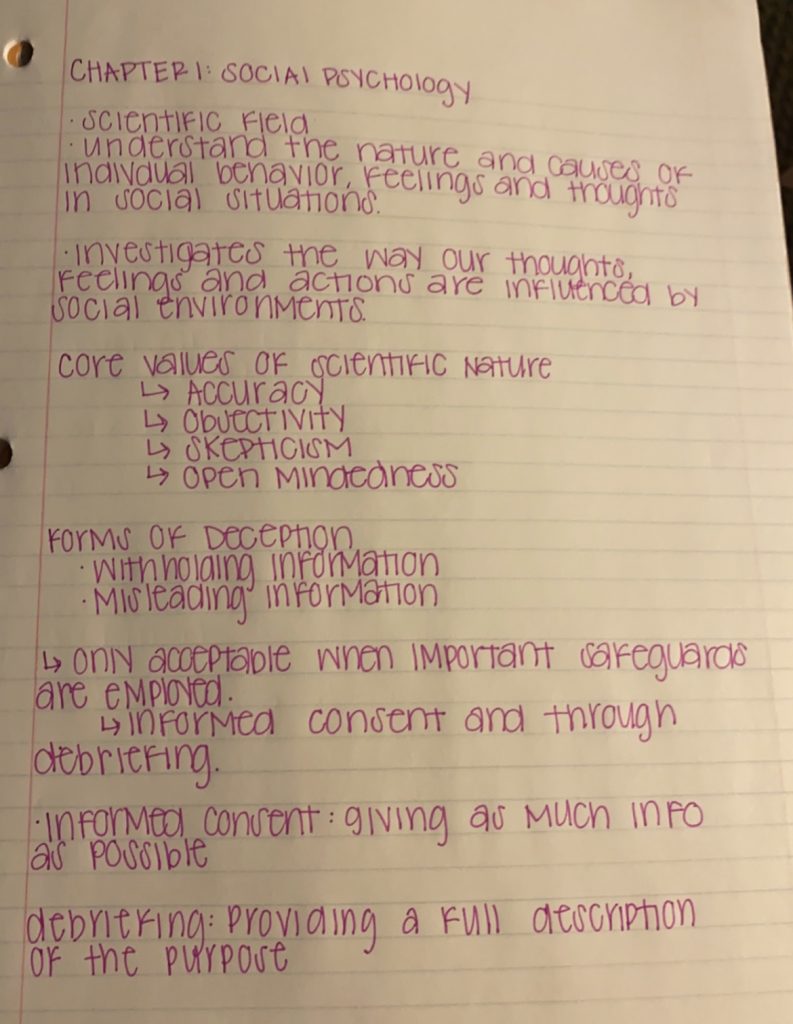 CHAPTER 1: SOCIAL PSYCHOLOGY
· SCIENTIFIC FIELD
· understand the nature and causes of
indivdual behavior, feelings and thoughts
in social situations.
· investigates the way our thoughts,
feelings and actions are influenced by
social environments.
core values of scientific nature
↳ Accuracy
↳ Objectivity
↳ Skepticism
↳ Open Mindedness
Forms of Deception
· Withholding information
· Misleading information
↳ only acceptable when important safeguards
are employed.
↳ informed consent and through
debriefing.
· informed consent: giving as much info
as possible
debriefing: providing a full description
of the purpose